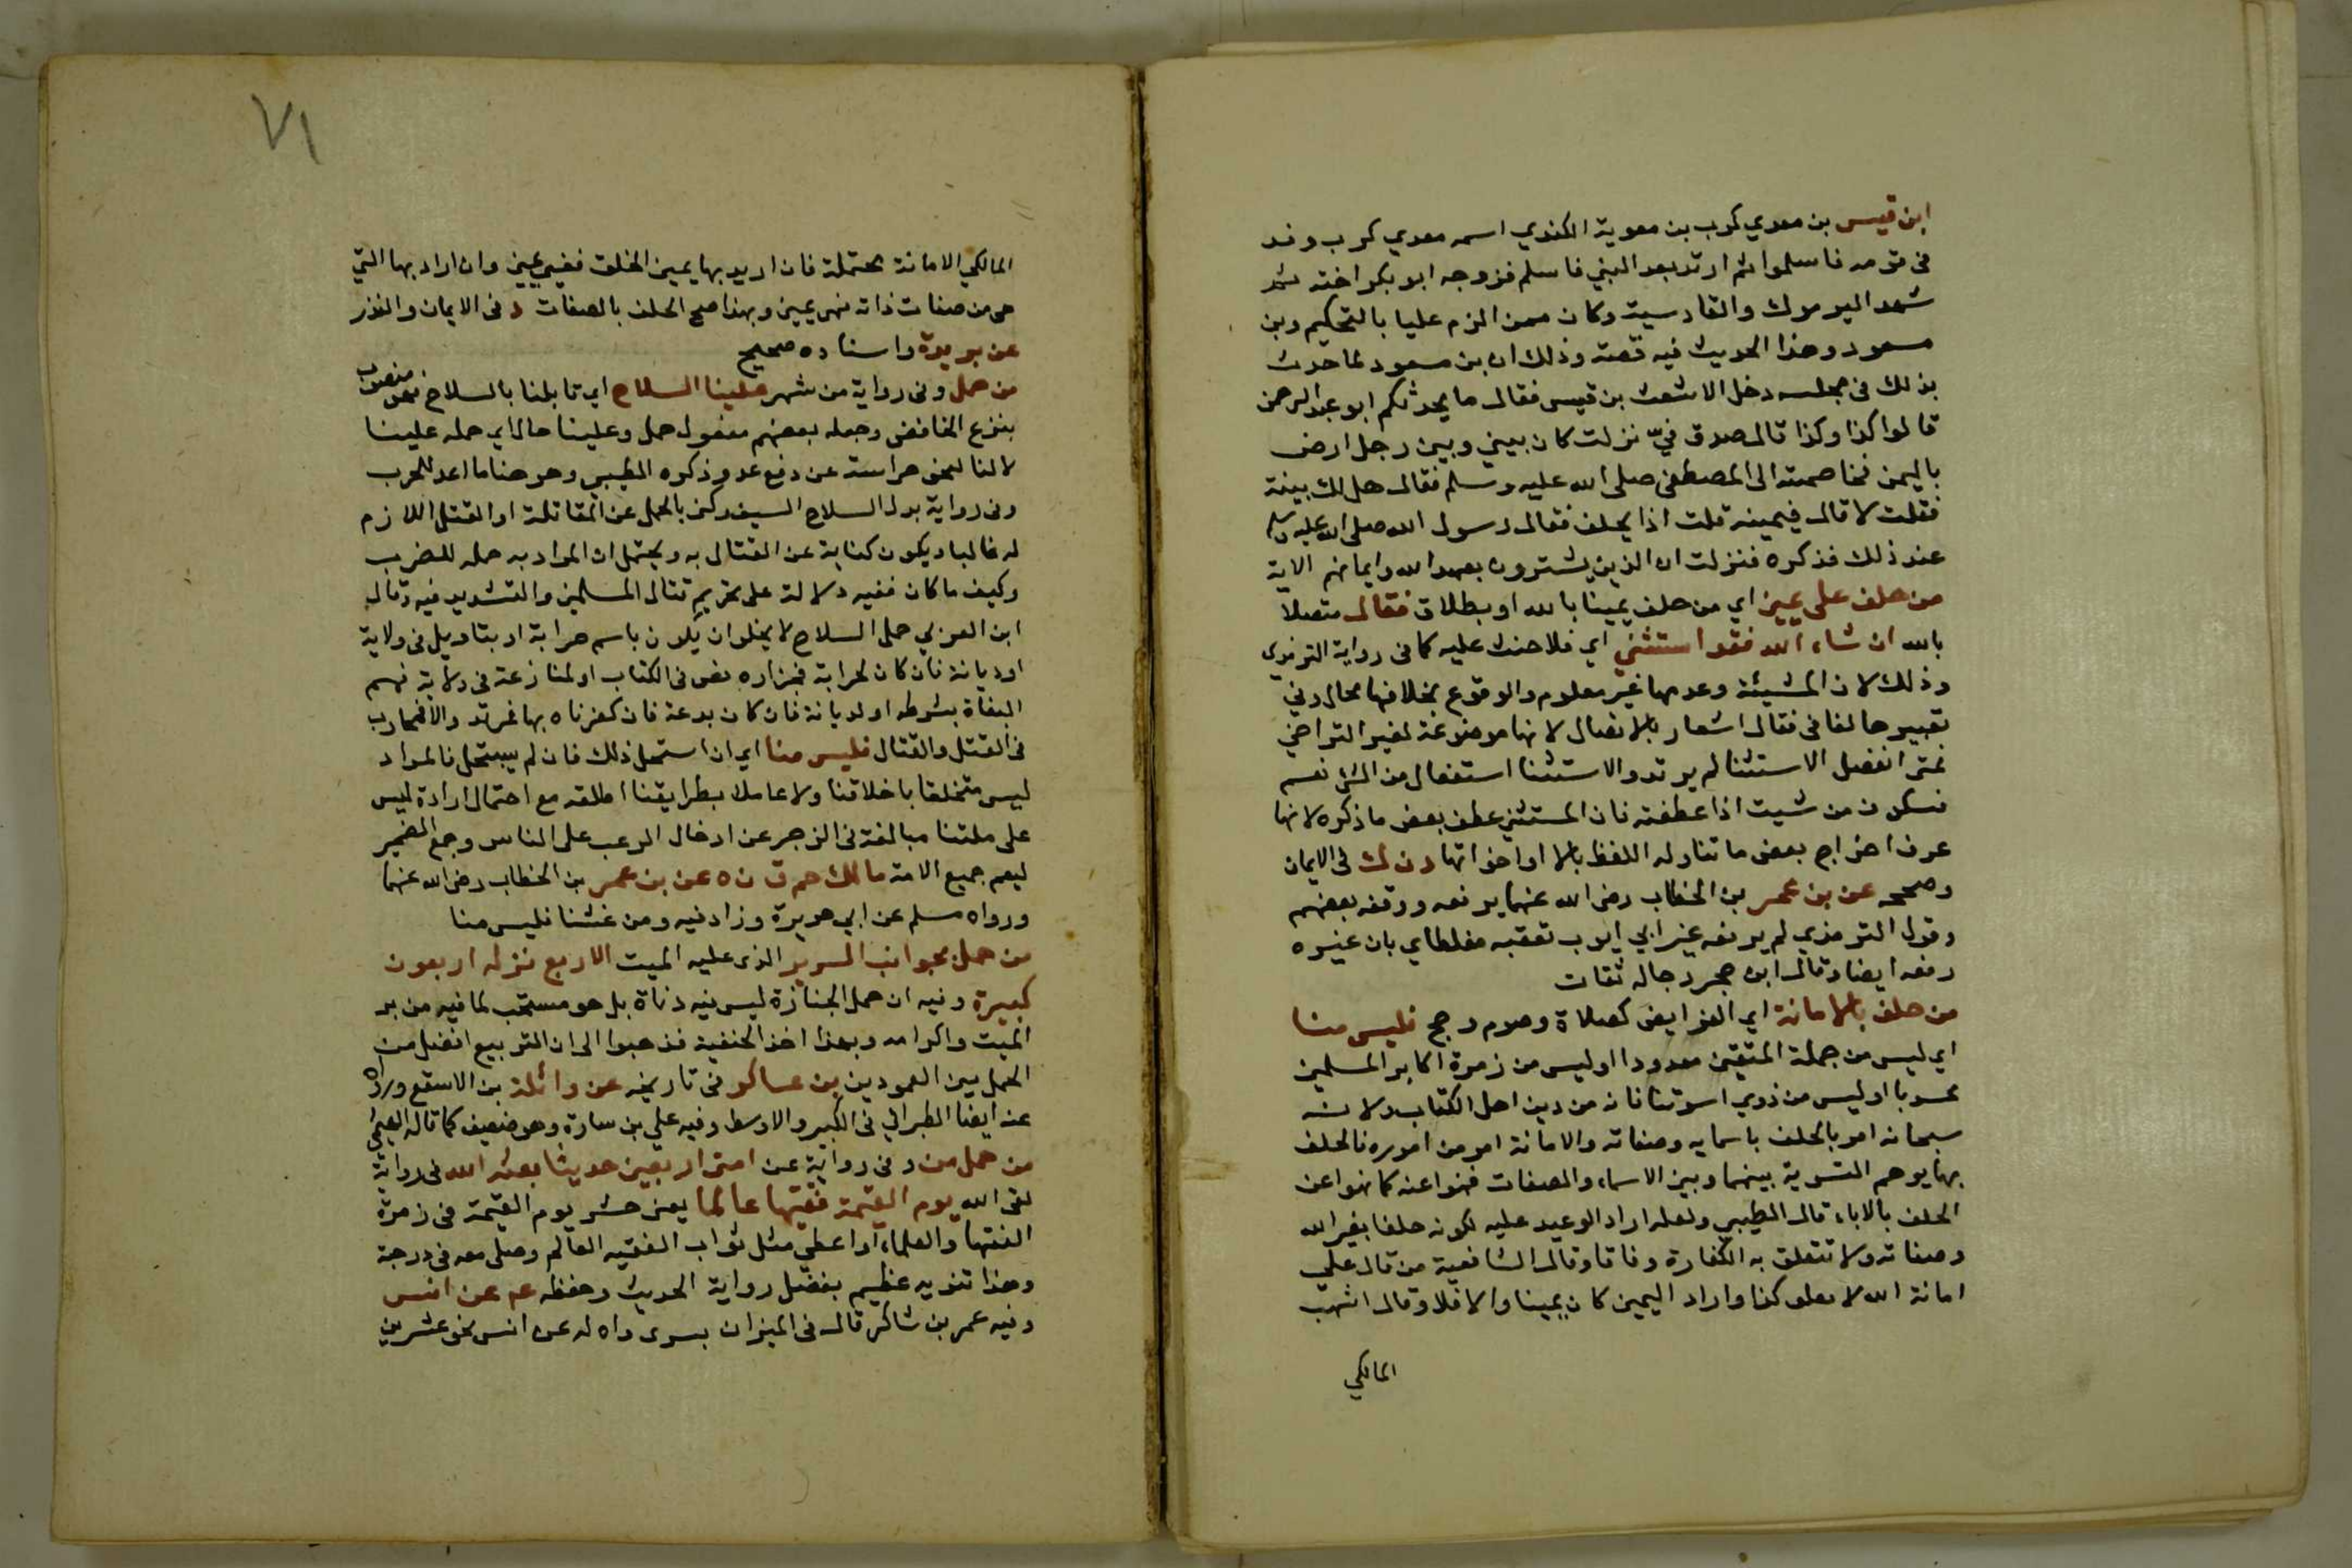 ابن قيس بن معدي كرب بن معوية الكندي اسمه معدي كرب وفد
في قومه فاسلموا ثم ارتد بعد النبي فاسلم فزوجه ابو بكر اخته ثم
شهد اليرموك والقادسية وكان ممن الزم عليا بالتحكيم وبن
مسعود وهذا الحديث فيه قصة وذلك ان بن مسعود لما حدث
بذلك في مجلسه دخل الاشعث بن قيس فقال ما يحدثكم ابو عبد الرحمن
قالوا كذا وكذا قال صدق فيّ نزلت كان بيني وبين رجل ارض
باليمن فخاصمته الى المصطفى صلى الله عليه وسلم فقال هل لك بينة
فقلت لا قال فيمينه قلت اذا يحلف فقال رسول الله صلى الله عليه وسلم
عند ذلك فذكره فنزلت ان الذين يشترون بعهد الله وايمانهم الاية
من حلف على يمين اي من حلف يمينا بالله او بطلاق فقال متصلا
بالله ان شاء الله فقد استثنى اي فلا حنث عليه كما في رواية الترمذي
وذلك لان المشيئة وعدمها غير معلوم والوقوع بخلافها محال وفي
تعبيرها لفا في فقال اشعار بالاتصال لانها موضوعة لغير التراخي
فمتى انفصل الاستثنا لم يرتد والاستثنا استفعال من الثنى نعم
فسكون من شيت اذا عطفته فان المستثني عطف بعض ما ذكره لانها
عرف اخراج بعض ما تناوله اللفظ بالا او اخواتها د ن ك في الايمان
وصححه عن بن عمر بن الخطاب رضى الله عنهما يرفعه ووقفه بعضهم
وقول الترمذي لم يرفعه غير ابي ايوب تعقبه مغلطاي بان غيره
رفعه ايضا وقال ابن حجر رجاله ثقات
من حلف بالامانة اي الفرايض كصلاة وصوم وحج فليس منا
اي ليس من جملة المتقين معدودا او ليس من زمرة اكابر المسلمين
محسوبا او ليس من ذوي اسوتنا فانه من دين اهل الكتاب ولانه
سبحانه امر بالحلف باسمايه وصفاته والامانة امر من اموره فالحلف
بها يوهم التسوية بينهما وبين الاسماء والصفات فنهوا عنه كما نهوا عن
الحلف بالاباء قال الطيبي ولعله اراد الوعيد عليه لكونه حلفا بغير الله
وصفاته ولا تتعلق به الكفارة وفاقا وقال الشافعية من قال علي
امانة الله لافعلن كذا واراد اليمين كان يمينا والا فلا وقال اشهب
المالكي
٧١
المالكي الامانة محتملة فان اريد بها يمين الخلق فغير يمين وان اراد بها التي
هي من صفات ذاته فهي يمين وبهذا صح الحلف بالصفات د في الايمان والنذر
عن بريدة واسناده صحيح
من حمل وفي رواية من شهر علينا السلاح اي قاتلنا بالسلاح فهو منصوب
بنزع الخافض وجعله بعضهم مفعول حمل وعلينا حال اي حمله علينا
لا لنا لنحو حراسة عن دفع عدو ذكره الطيبي وهو هنا ما اعد للحرب
وفي رواية بدل السلاح السيف وكنى بالحمل عن المقاتلة او القتل اللازم
له غالبا ويكون كناية عن القتال به ويحتمل ان المراد به حمله للضرب
وكيف ما كان ففيه دلالة على تحريم قتال المسلمين والتشديد فيه وقال
ابن العربي حمل السلاح لا يخلوا ان يكون باسم حرابة او بتاويل في ولاية
او ديانة فان كان لحرابة فجزاره نص في الكتاب او لمنازعة في ولاية فهم
البغاة بشرطه او لديانة فان كان بدعة فان كفرناه بها فمرتد والا فمحارب
في القتل والقتال فليس منا اي ان استحل ذلك فان لم يستحل فالمراد
ليس متخلقا باخلاقنا ولا عاملا بطرايقنا اطلقه مع احتمال ارادة ليس
على ملتنا مبالغة في الزجر عن ادخال الرعب على الناس وجمع الضمير
ليعم جميع الامة مالك حم ق ن ه عن بن عمر بن الخطاب رضى الله عنهما
ورواه مسلم عن ابي هريرة وزاد فيه ومن غشنا فليس منا
من حمل بجوانب السرير الذى عليه الميت الاربع غفر له اربعون
كبيرة وفيه ان حمل الجنازة ليس فيه دناة بل هو مستحب لما فيه من بر
الميت واكرامه وبهذا اخذ الحنفية فذهبوا الى ان التربيع افضل من
الحمل بين العمودين بن عساكر في تاريخه عن واثلة بن الاسقع ورواه
عنه ايضا الطبراني في الكبير والاوسط وفيه علي بن سارة وهو ضعيف كما قاله الهيثمي
من حمل من وفي رواية عن امتى اربعين حديثا بعثه الله في رواية
لقى الله يوم القيمة فقيها عالما يعنى حشر يوم القيمة في زمرة
الفقها والعلماء او اعطي مثل ثواب الفقيه العالم وصلى معه في درجة
وهذا تنويه عظيم بفضل رواية الحديث وحفظه عد عن انس
وفيه عمر بن شاكر قال في الميزان يسرى واه له عن انس نحو عشرين